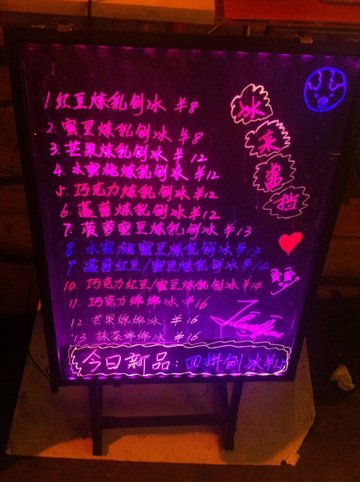 1.红豆炼乳刨冰 ¥8
2.蜜豆炼乳刨冰 ¥8
3.芒果炼乳刨冰 ¥12
4.水蜜桃炼乳刨冰 ¥12
5.巧克力炼乳刨冰 ¥12
6.蓝莓炼乳刨冰 ¥12
7.菠萝蜜豆炼乳刨冰 ¥13
8.水蜜桃蜜豆炼乳刨冰 ¥13
9.蓝莓红豆/蜜豆炼乳刨冰 ¥14
10.巧克力红豆/蜜豆炼乳刨冰 ¥14
11.巧克力绵绵冰 ¥16
12 芒果绵绵冰 ¥16
13 抹茶绵绵冰 ¥16
今日新品:四拼刨冰
冰
来
挡